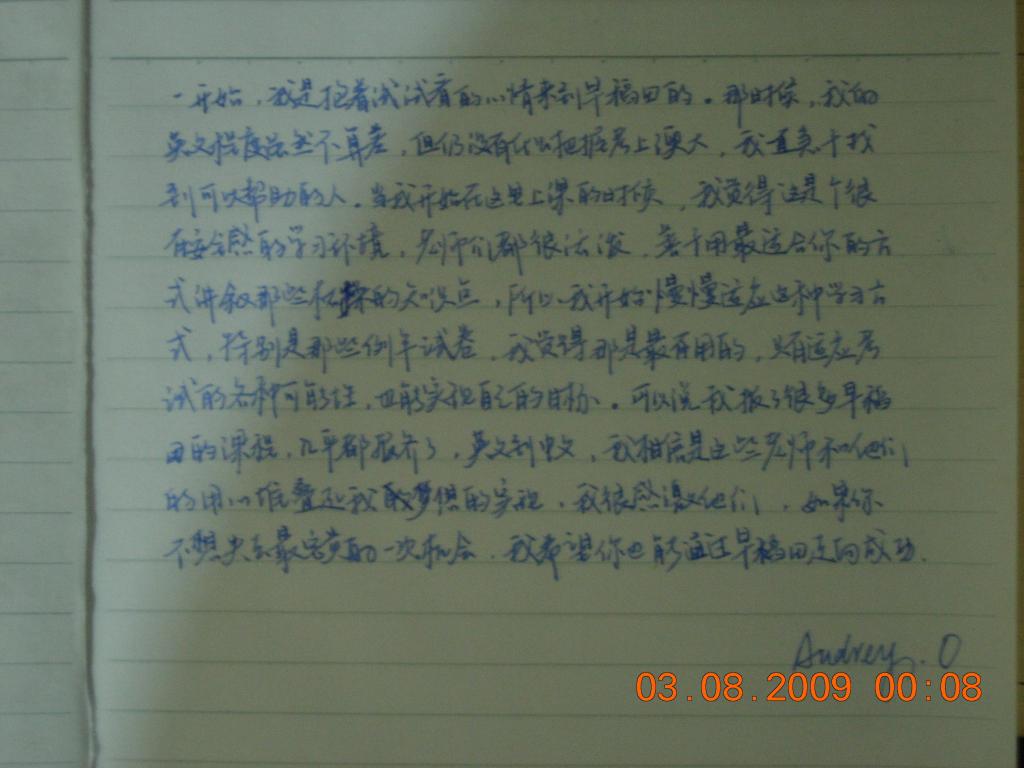 一开始，我是抱着试试看的心情来到早稻田的。那时候，我的
英文程度虽然不算差，但仍没有什么把握考上澳大，我直急于找
到可以帮助的人。当我开始在这里上课的时候，我觉得这是个很
有安全感的学习环境，老师们都很活泼，善于用最适合你的方
式讲叙那些枯燥的知识点，所以我开始慢慢适应这种学习方
式，特别是那些例年试卷，我觉得那是最有用的，只有适应考
试的各种可能性，也能实现自己的目标。可以说我报了很多早稻
田的课程，几乎都报齐了，英文到中文，我相信是这些老师和他们
的用心堆叠起我梦想的实现，我很感激他们，如果你
不想失去最宝贵的一次机会，我希望你也能通过早稻田迈向成功.
Audrey. O
03.08.2009 00:08